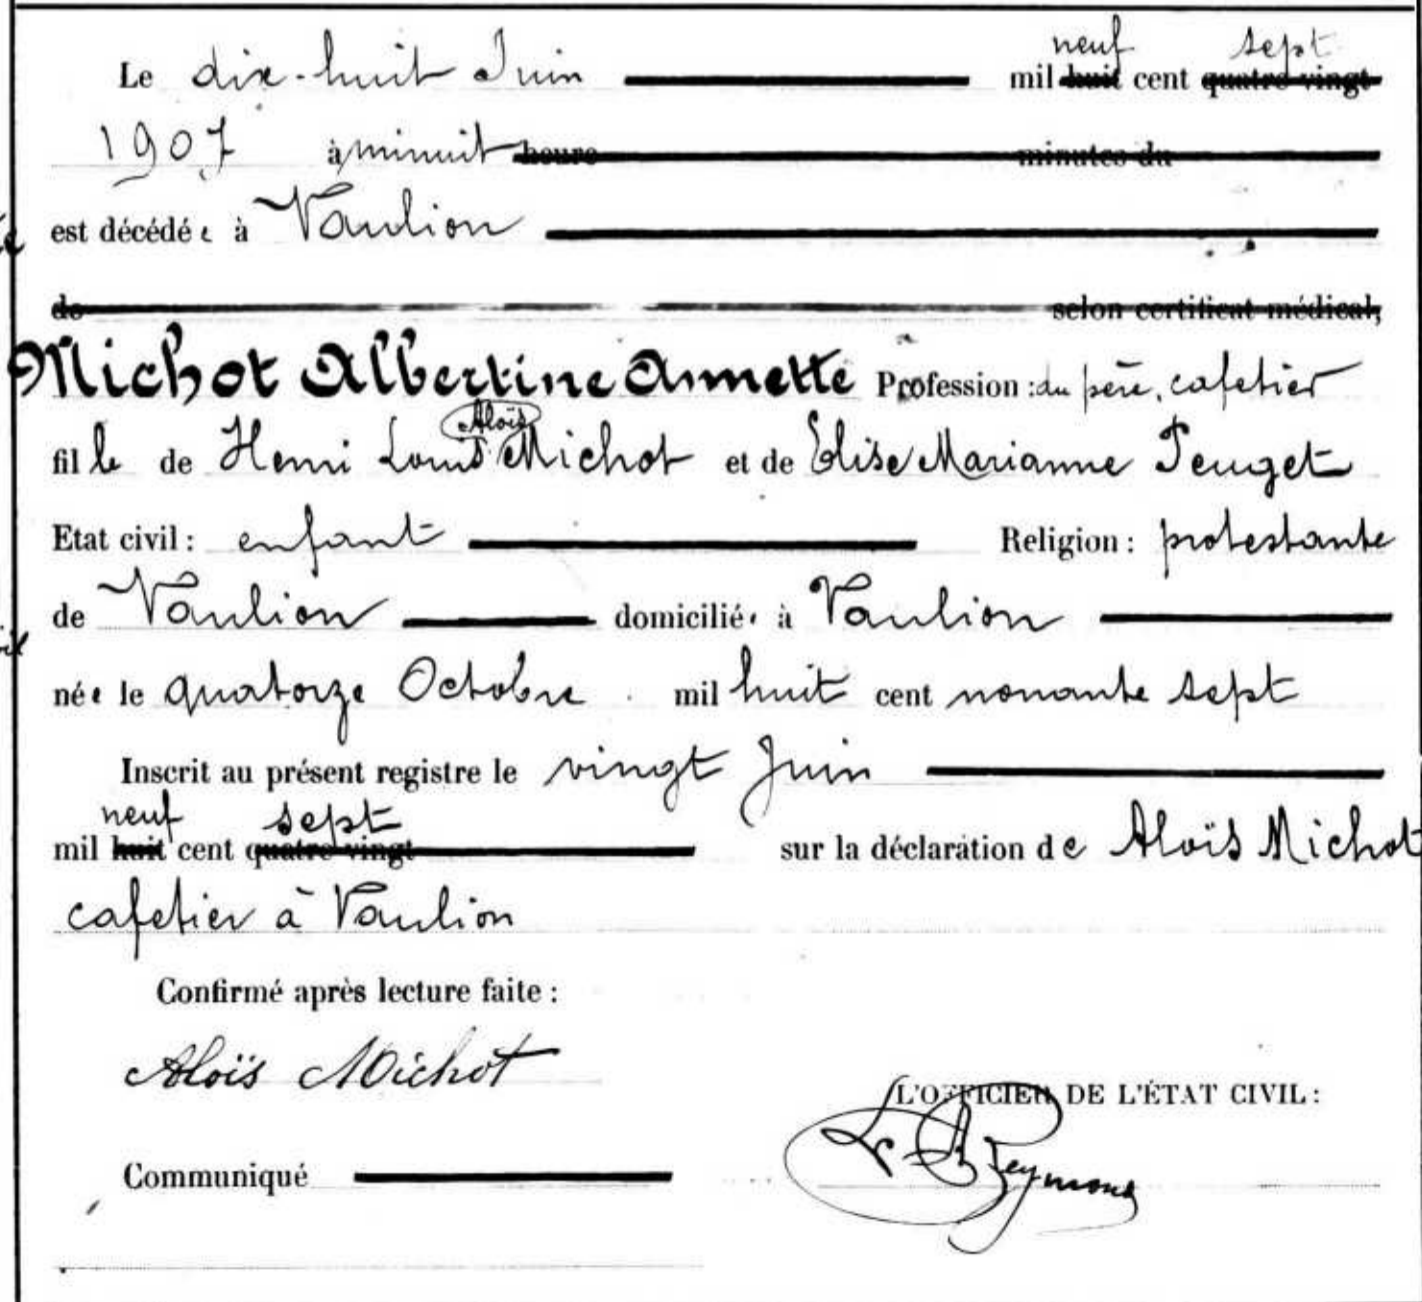 neuf sept
Le dix-huit Juin mil huit cent quatre vingt
1907 à minuit heure minutes du
est décédée à Vaulion
de selon certificat médical,
Michot Albertine Annette Profession : du père, cafetier
Aloïs
fille de Henri Louis Michot et de Elise Marianne Peuget
Etat civil : enfant Religion : protestante
de Vaulion domiciliée à Vaulion
née le quatorze Octobre mil huit cent nonante sept
Inscrit au présent registre le vingt Juin
neuf sept
mil huit cent quatre vingt sur la déclaration de Aloïs Michot
cafetier à Vaulion
Confirmé après lecture faite :
Aloïs Michot
L'OFFICIER DE L'ÉTAT CIVIL :
L Reymond
Communiqué